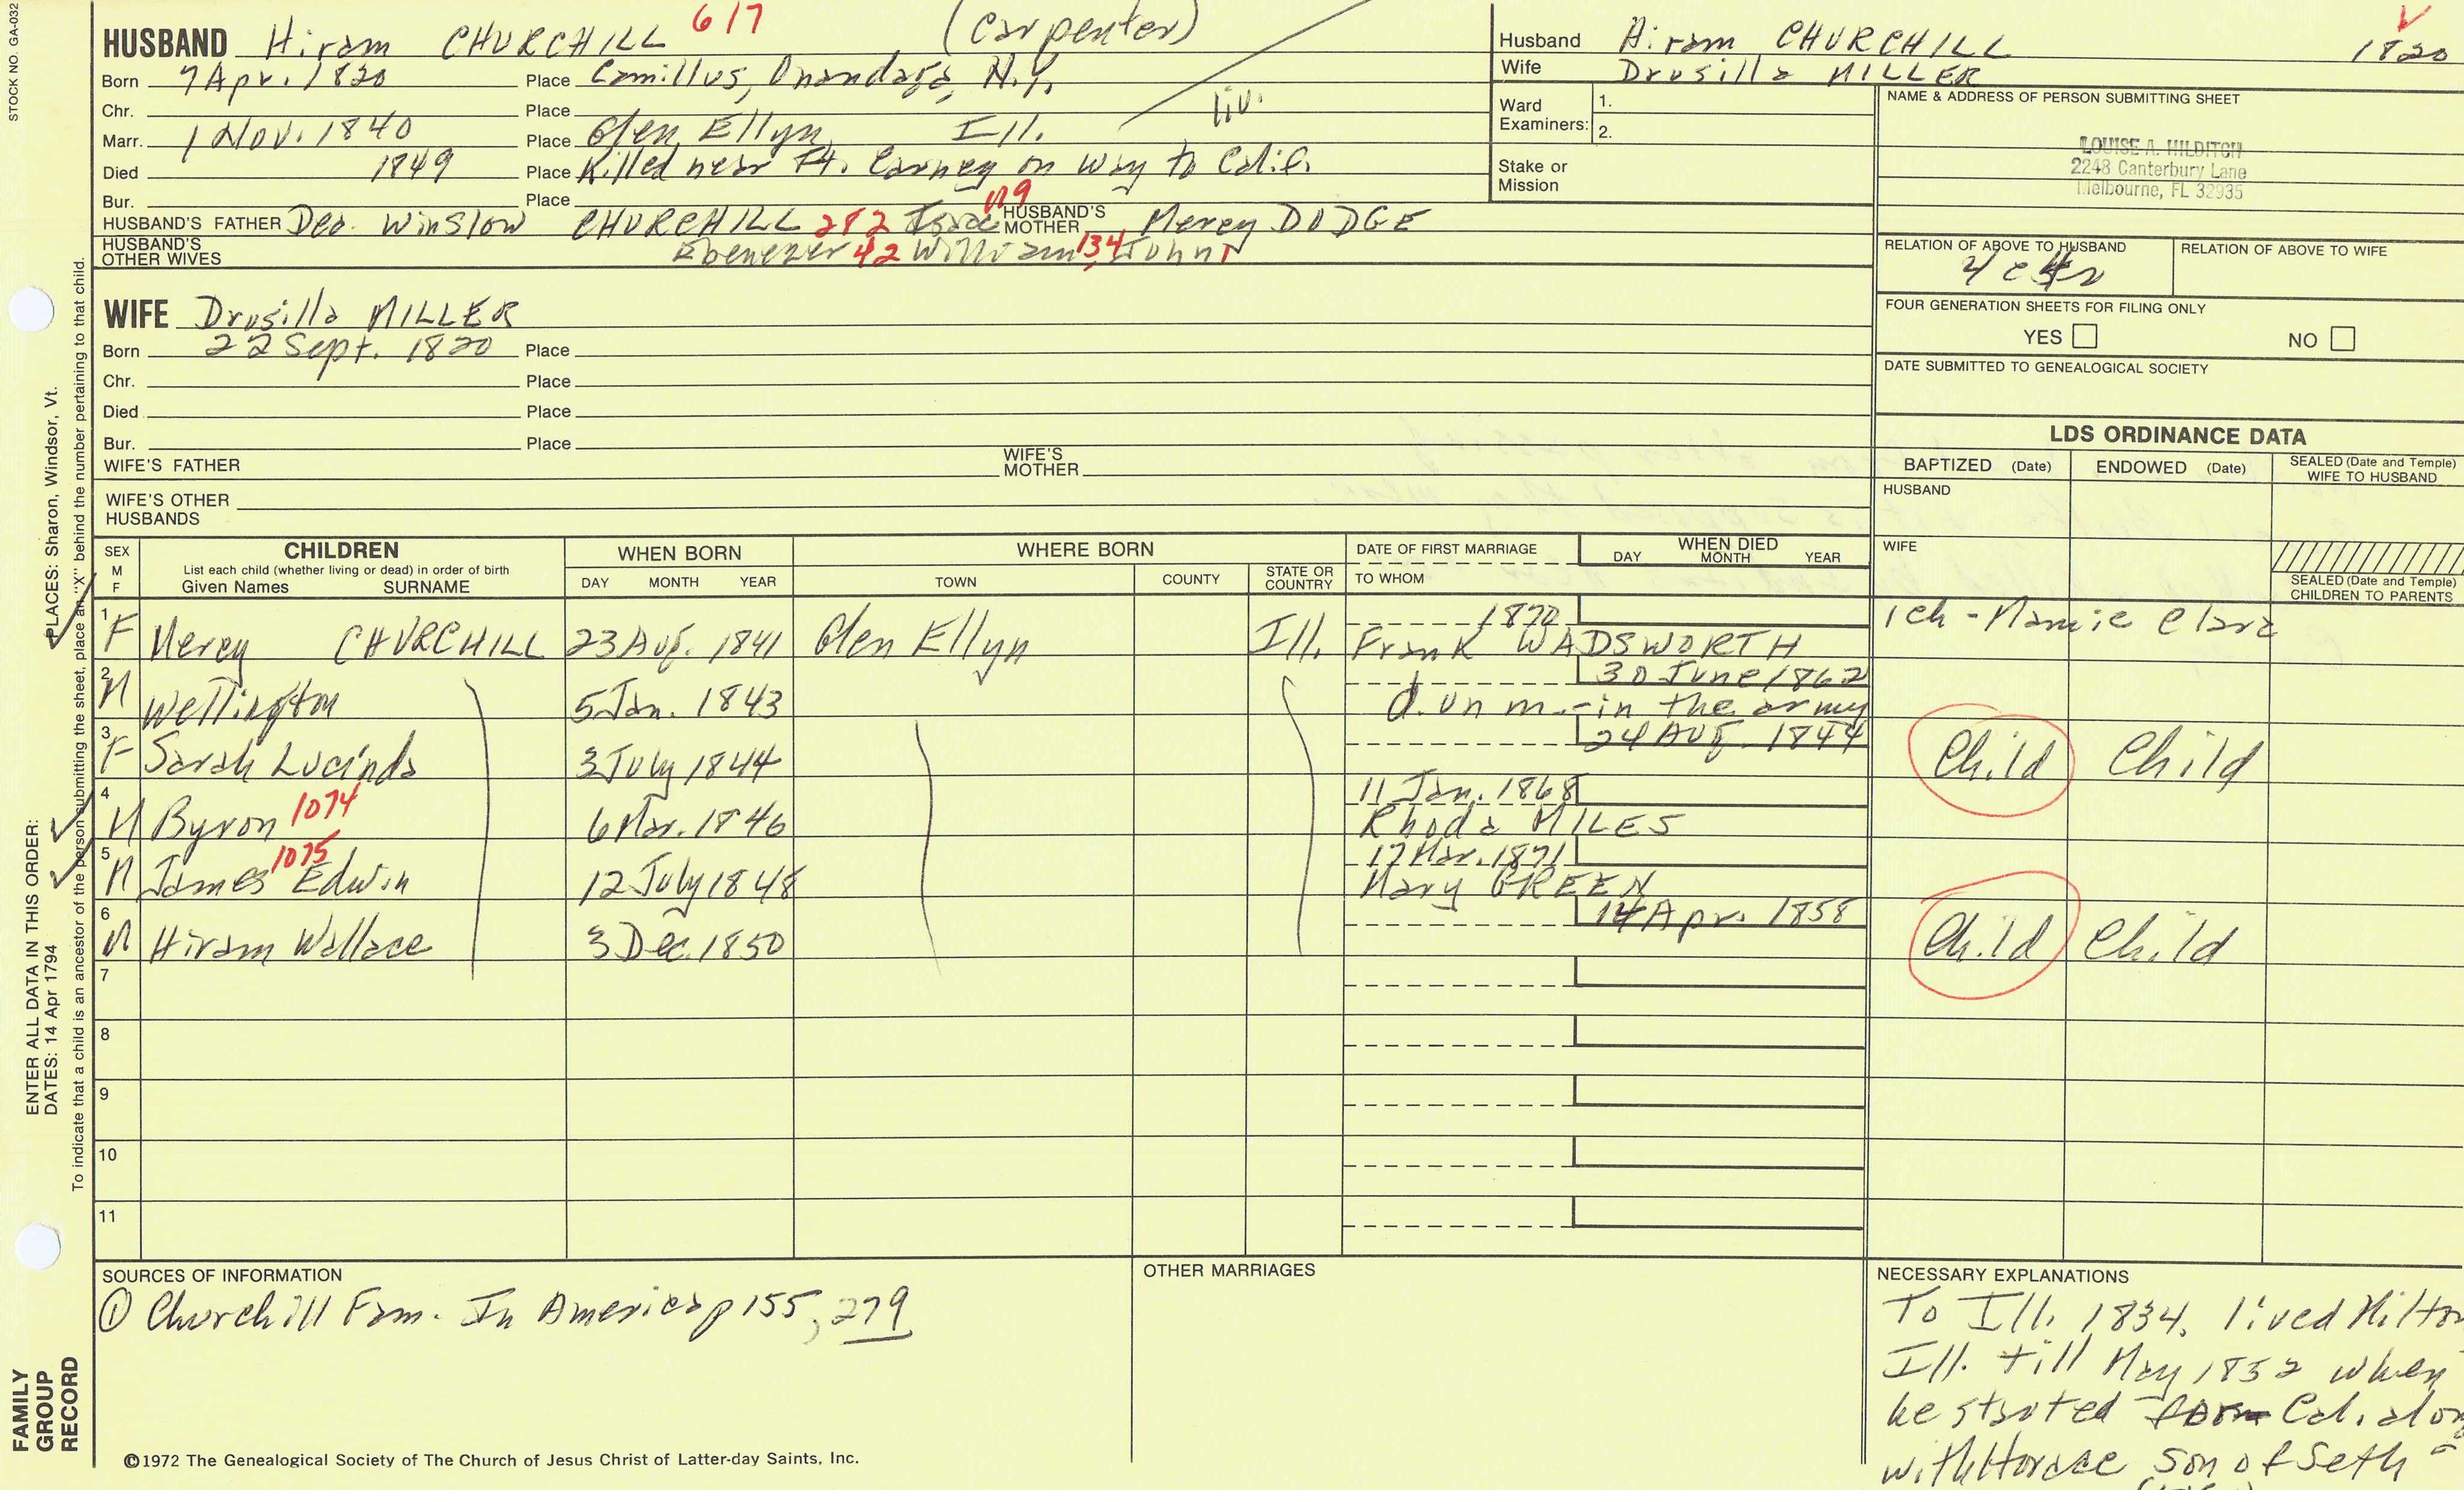 STOCK NO. GA-032
HUSBAND Hiram CHURCHILL 617 (Carpenter)
Born 7 Apr. 1820 Place Camillus, Onandaga, N.Y.
Chr. Place liv.
Marr. 1 Nov. 1840 Place Glen Ellyn, Ill.
Died 1849 Place Killed near Ft. Carney on way to Calif.
Bur. Place
HUSBAND'S FATHER Dea. Winslow CHURCHILL 282 Isaac 119 HUSBAND'S MOTHER Mercy DODGE
HUSBAND'S OTHER WIVES Ebenezer 42 William 134, John 1
Husband Hiram CHURCHILL 1820
Wife Drusilla MILLER
Ward Examiners: 1.
2.
Stake or Mission
NAME & ADDRESS OF PERSON SUBMITTING SHEET
LOUISE A. HILDITCH
2248 Canterbury Lane
Melbourne, FL 32935
RELATION OF ABOVE TO HUSBAND RELATION OF ABOVE TO WIFE
FOUR GENERATION SHEETS FOR FILING ONLY
YES NO
DATE SUBMITTED TO GENEALOGICAL SOCIETY
WIFE Drusilla MILLER
Born 22 Sept. 1820 Place
Chr. Place
Died Place
Bur. Place
WIFE'S FATHER WIFE'S MOTHER
WIFE'S OTHER HUSBANDS
LDS ORDINANCE DATA
BAPTIZED (Date) ENDOWED (Date) SEALED (Date and Temple) WIFE TO HUSBAND
HUSBAND
WIFE
SEALED (Date and Temple) CHILDREN TO PARENTS
SEX M F CHILDREN List each child (whether living or dead) in order of birth Given Names SURNAME
WHEN BORN DAY MONTH YEAR
WHERE BORN TOWN COUNTY STATE OR COUNTRY
DATE OF FIRST MARRIAGE TO WHOM
WHEN DIED DAY MONTH YEAR
1 F Mercy CHURCHILL 23 Aug. 1841 Glen Ellyn Ill. 1870 Frank WADSWORTH 1 ch - Mamie Clara
2 M Wellington 5 Jan. 1843 30 June 1862 d. unm. - in the army
3 F Sarah Lucinda 3 July 1844 24 Aug. 1844 Child Child
4 M Byron 1074 6 Mar. 1846 11 Jan. 1868 Rhoda MILES
5 M James Edwin 1075 12 July 1848 17 Mar. 1871 Mary GREEN
6 M Hiram Wallace 3 Dec. 1850 14 Apr. 1858 Child Child
7
8
9
10
11
SOURCES OF INFORMATION
① Churchill Fam. In America p 155, 279
OTHER MARRIAGES
NECESSARY EXPLANATIONS
To Ill. 1834, lived Milton
Ill. till May 1852 when
he started for Cal. alon
with Horace son of Seth
©1972 The Genealogical Society of The Church of Jesus Christ of Latter-day Saints, Inc.
FAMILY GROUP RECORD
ENTER ALL DATA IN THIS ORDER:
DATES: 14 Apr 1794 PLACES: Sharon, Windsor, Vt.
To indicate that a child is an ancestor of the person submitting the sheet, place an "X" behind the number pertaining to that child.